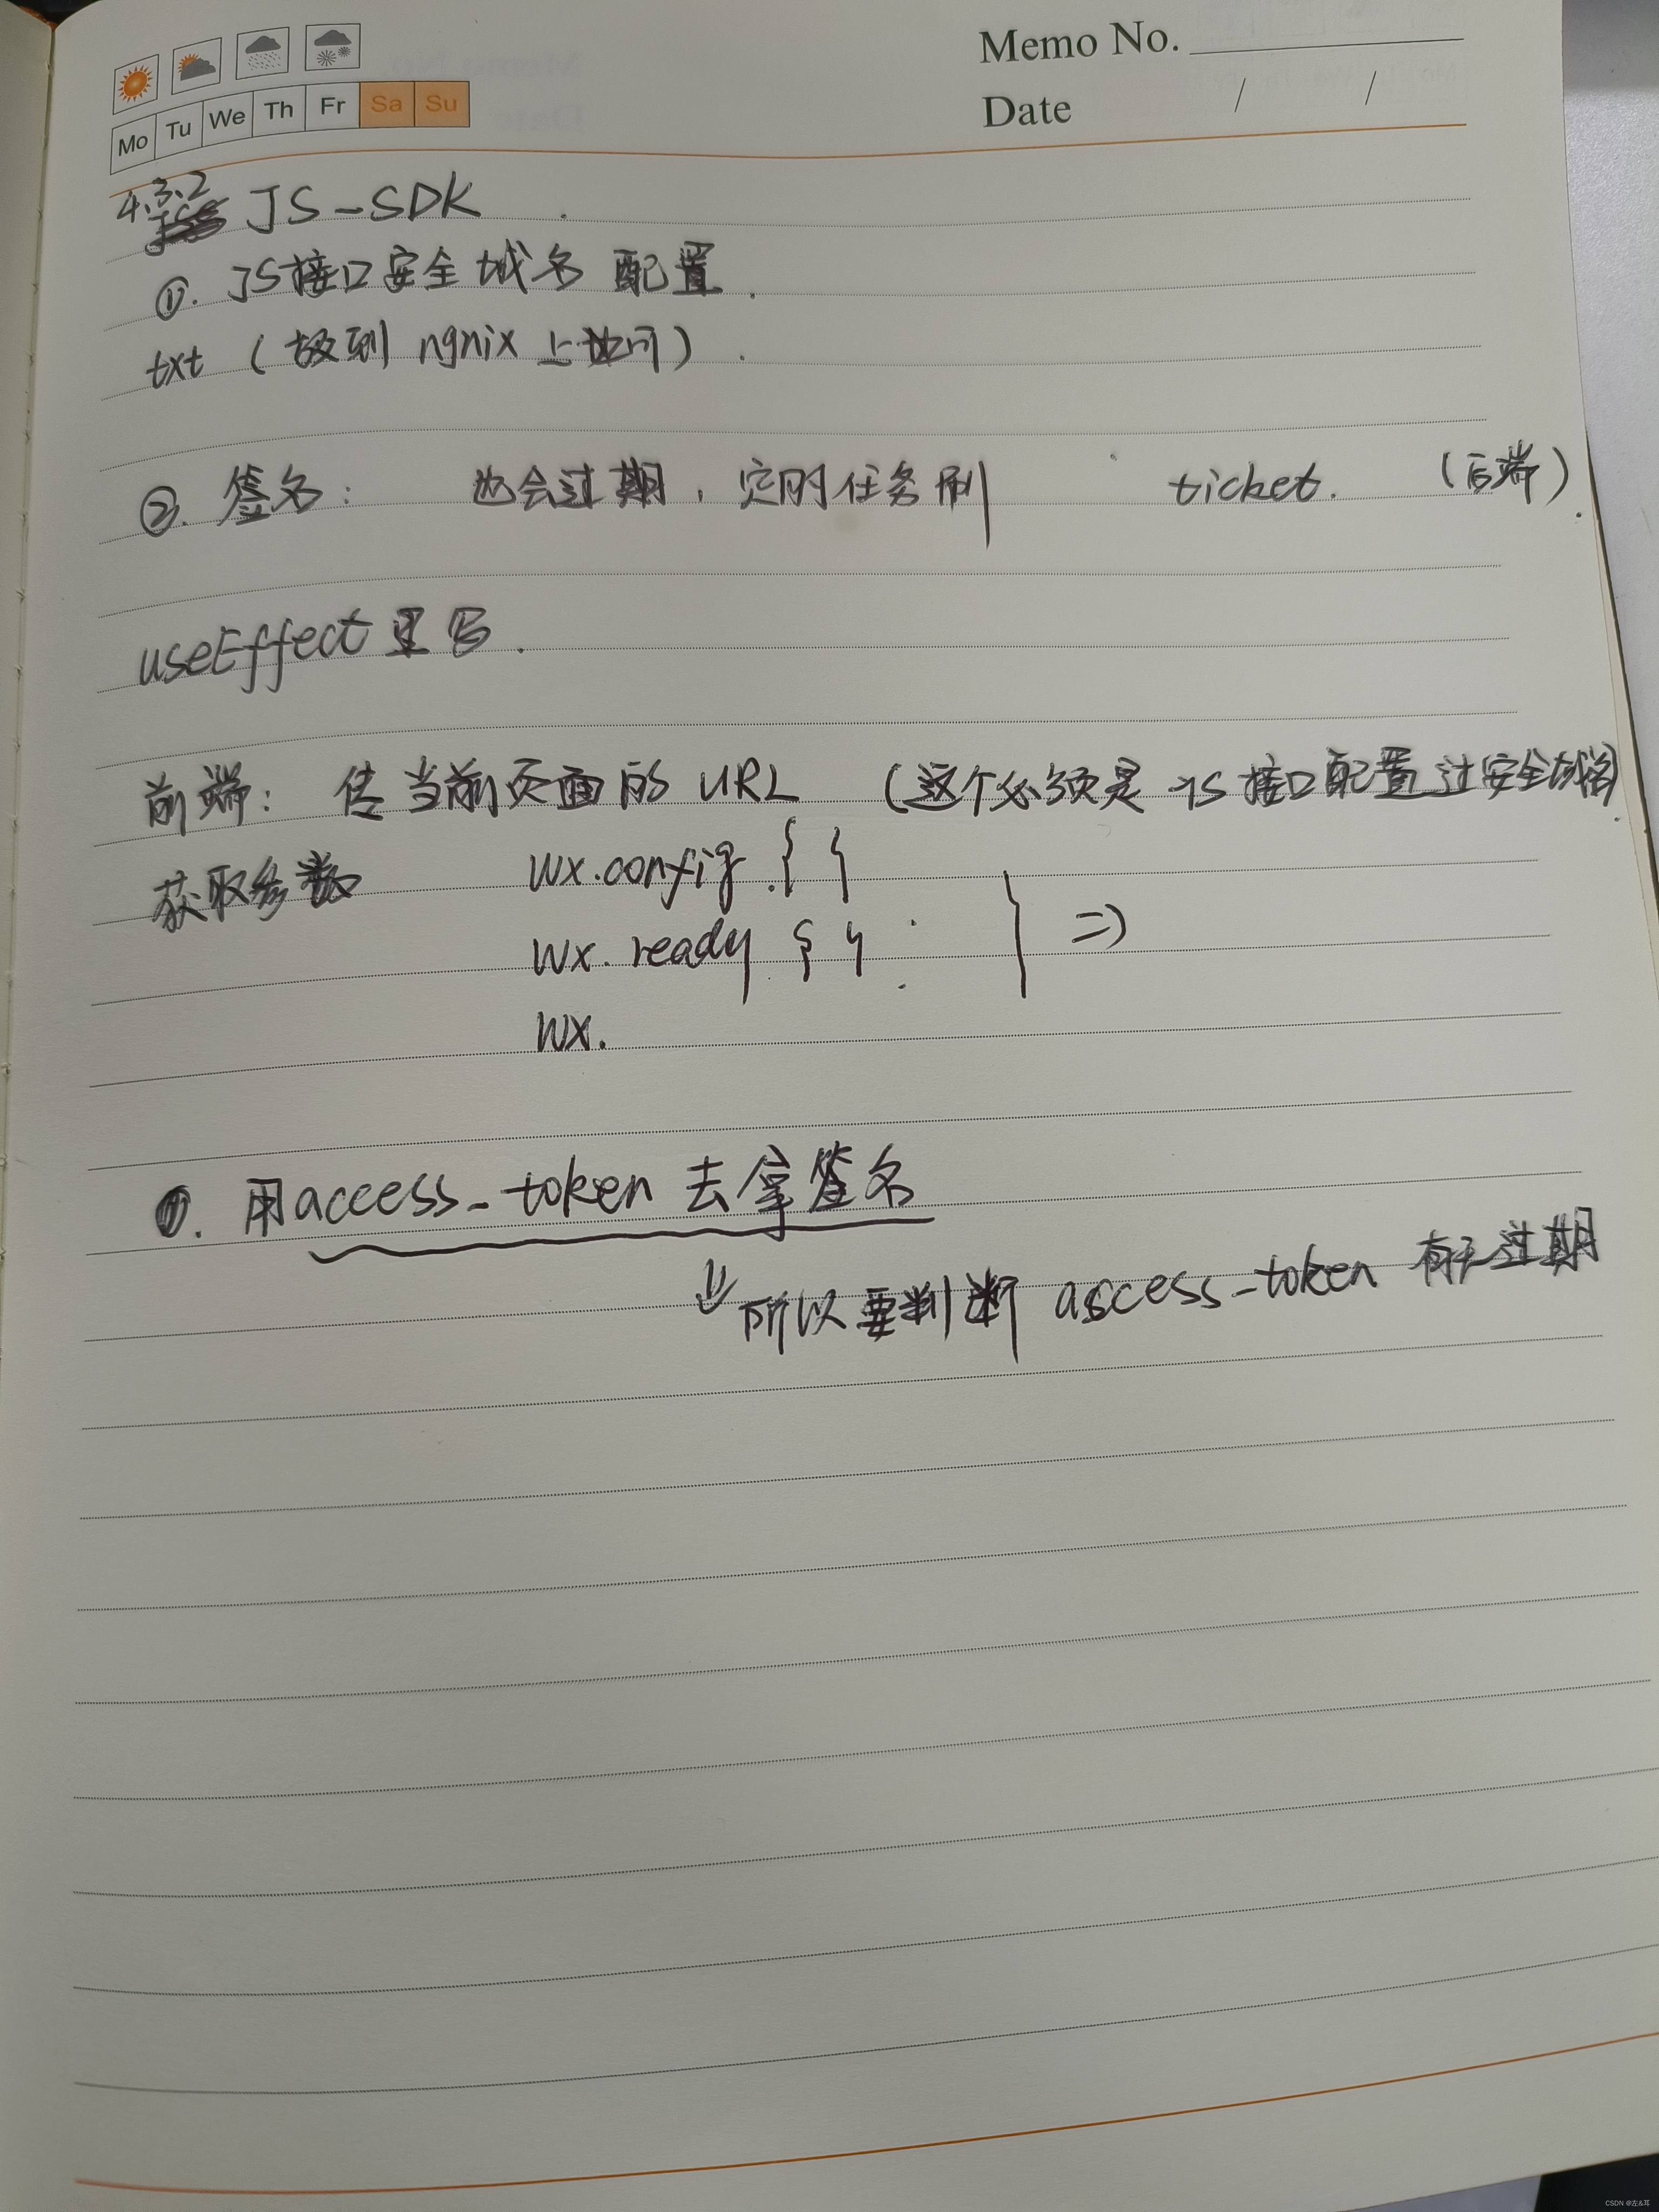 Memo No.
Mo Tu We Th Fr Sa Su
Date / /
4.3.2 JS-SDK
①. JS接口安全域名 配置.
txt (放到 ngnix 上访问).
②. 签名: 也会过期, 定时任务刷 ticket. (后端).
useEffect 里写.
前端: 传当前页面的 URL (这个必须是 JS接口配置过安全域名)
获取参数 wx.config.{ }
wx.ready { } } =>
wx.
①. 用access_token 去拿签名
⇓ 所以要判断 access-token 有无过期
CSDN @左&耳